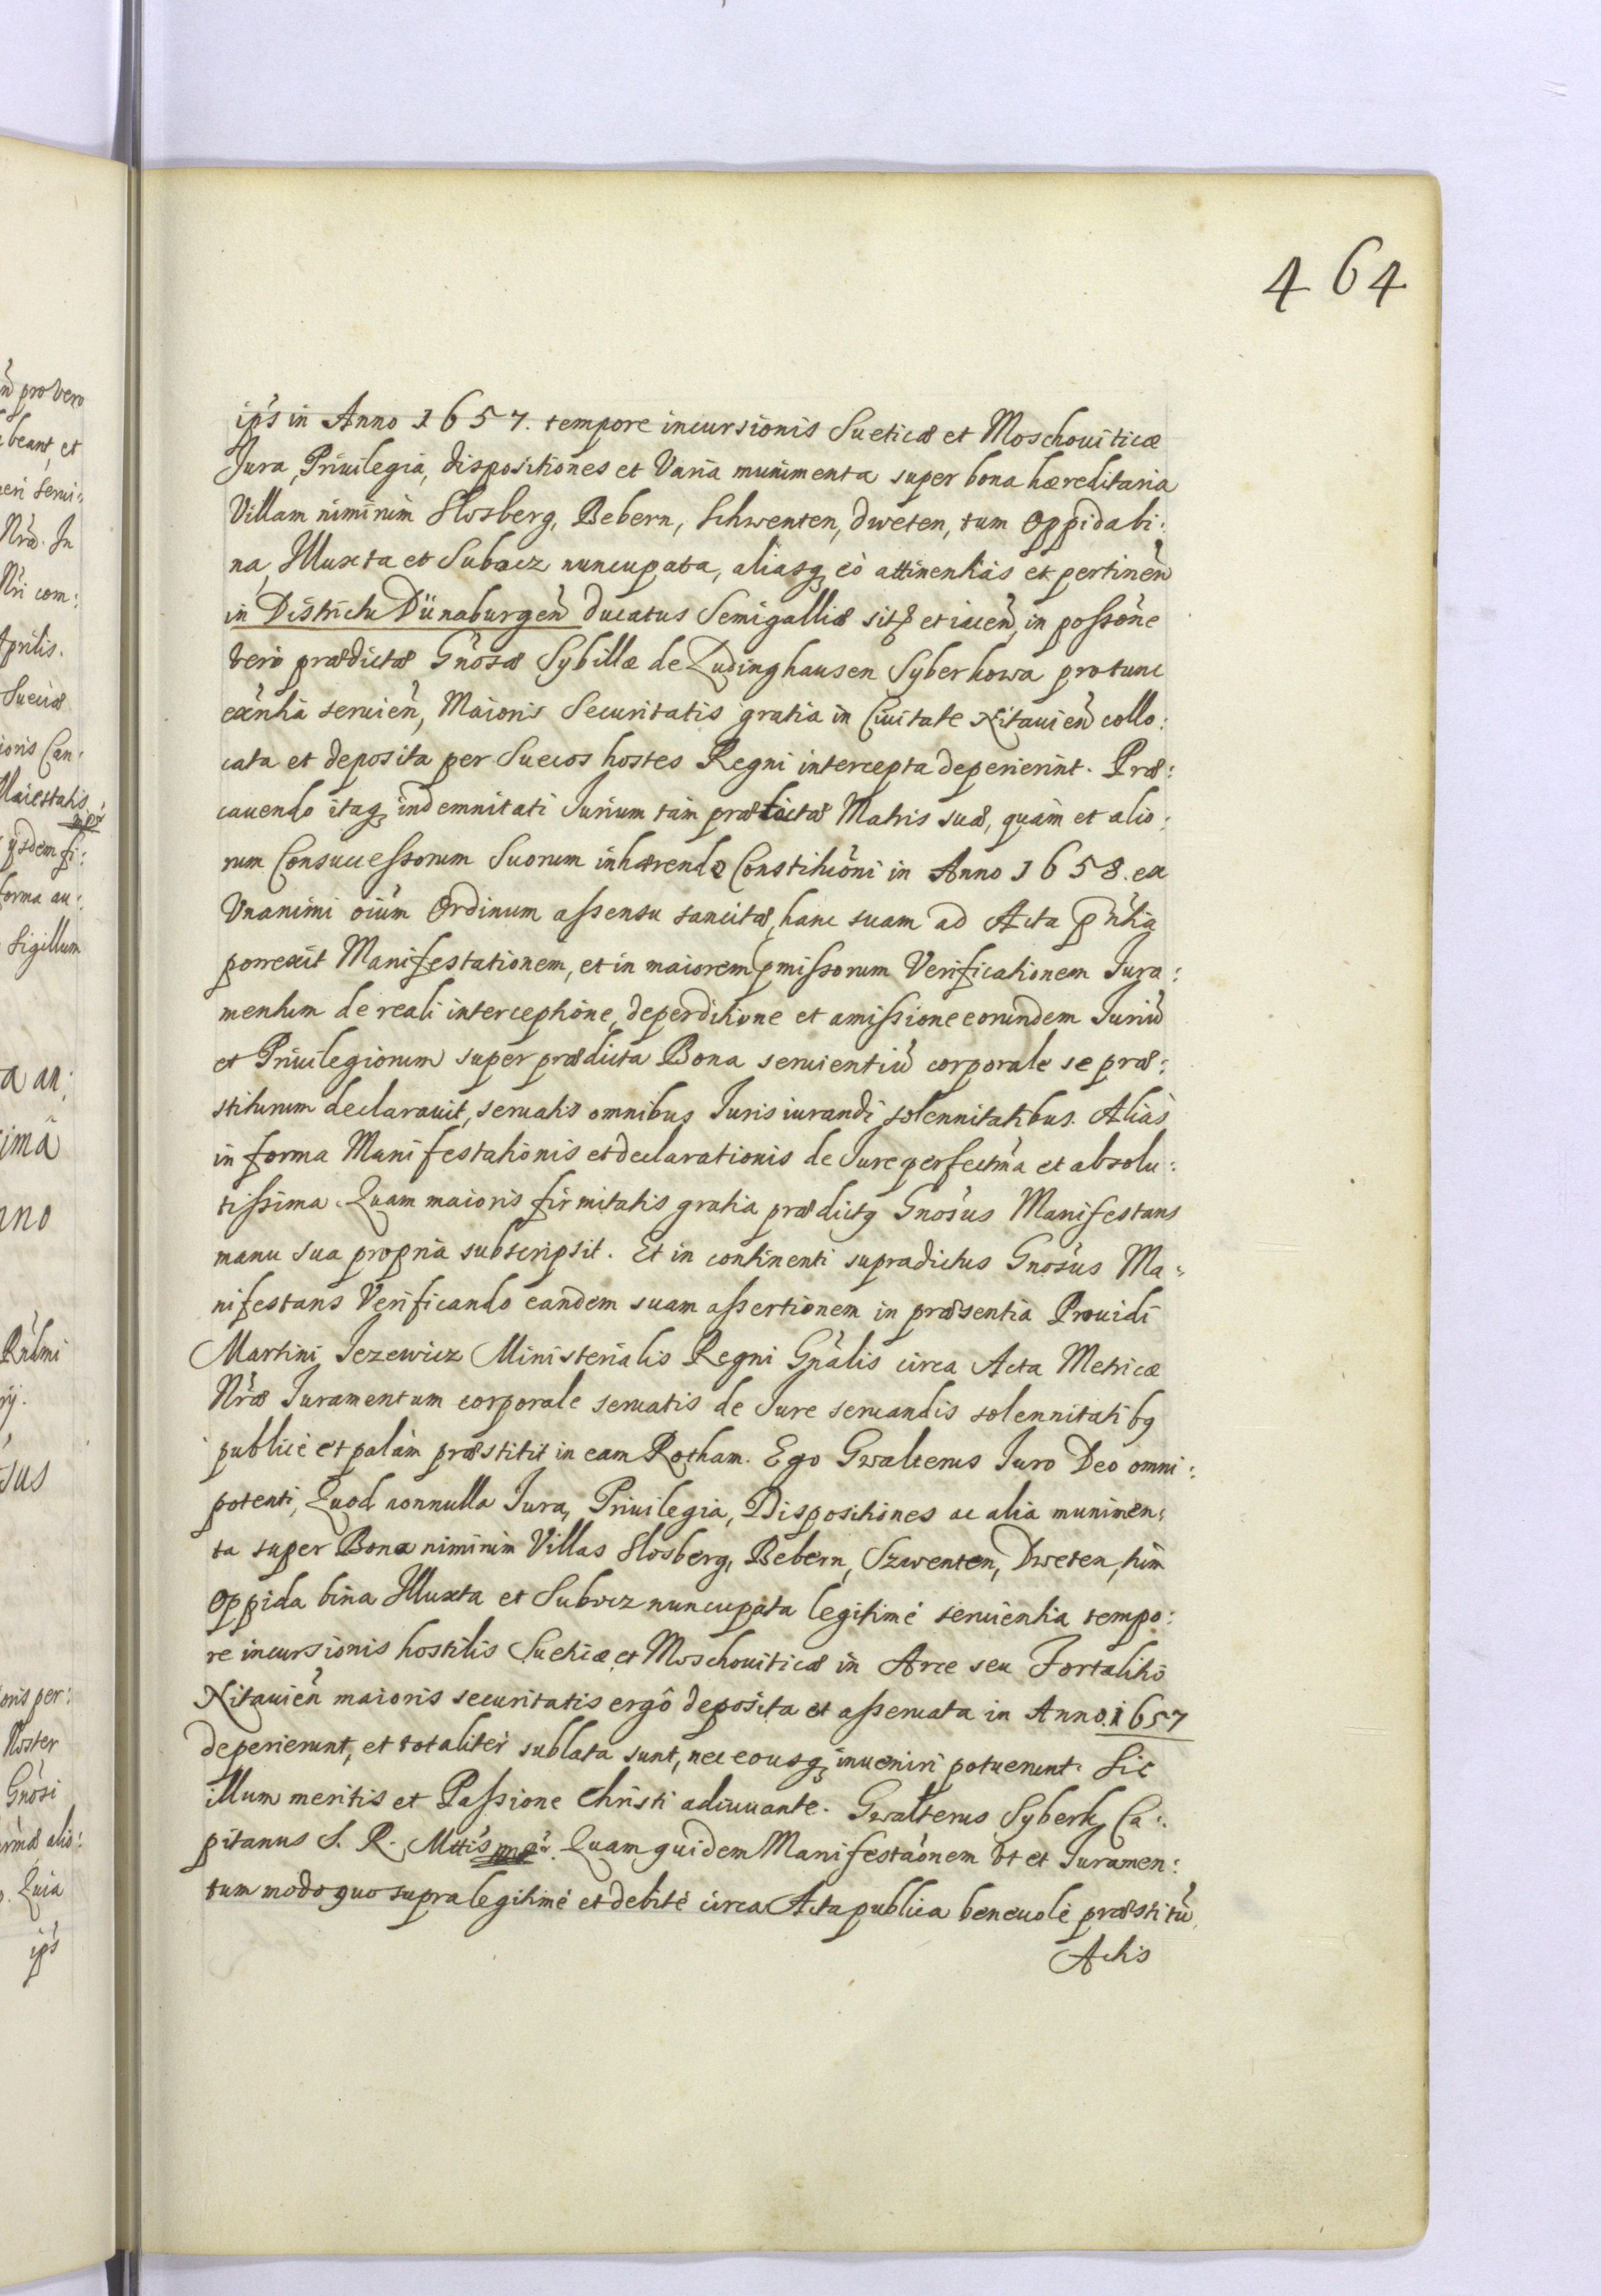 464
ip's in Anno 1657. tempore incursionis Sueticæ et Moschouiticæ
Jura, Priuilegia, dispositiones et Varia munimenta super bona hæreditaria
Villam nimirum Slosberg, Bebern, Schwenten, Dweten, tum Oppida bi:
na, Illuxta et Subacz nuncupata, aliasq₃ eò attinentias et pertineñ
in Districtu Dünaburgeñ Ducatus Semigalliæ sitɇ et iaceñ, in posso̅ne
vero prædictæ Gnosæ Sybillæ de Ludinghausen Syberkowa protunc
exn̅tia seruieñ, Maioris Securitatis gratia in Ciuitate Nitauieñ collo:
cata et deposita per Suecos hostes Regni intercepta deperierunt. Præ:
cauendo itaq₃ indemnitati Jurium tàm prædictæ Matris suæ, quàm et alio:
rum Consuccessorum Suorum inhærendo Constitu̅oni in Anno 1658. ex
Vnanimi oiu̅m Ordinum assensu sancitæ, hanc suam ad Acta pn̅tia
porrexit Manifestationem, et in maiorem p̱missorum Verificationem Jura:
mentum de reali interceptione, deperditione et amissione eorundem Juriu̅
et Priuilegiorum super prædicta Bona seruientiu̅ corporale se præ:
stiturum declarauit, seruatis omnibus Juris iurandi solennitatibus. Aliàs
in forma Manifestationis et declarationis de Jure perfectm̅a et absolu:
tissima. Quam maioris firmitatis gratia prædictꝯ Gnosus Manifestans
manu sua propria subscripsit. Et in continenti supradictus Gnosus Ma:
nifestans Verificando eandem suam assertionem in præsentia Prouidi
Martini Jezewicz Ministerialis Regni Gn̅alis circa Acta Metricæ
Nr̅æ Juramentum corporale seruatis de Jure seruandis solennitatibꝯ
publicè et palàm præstitit in eam Rotham. Ego Gwalterus Juro Deo omni:
potenti, Quod nonnulla Jura, Priuilegia, Dispositiones ac alia munimen:
ta super Bona nimirùm Villas Slosberg, Bebern, Szwenten, Dweten, tùm
Oppida bina Illuxta et Subocz nuncupata legitimè seruientia tempo:
re incursionis hostilis Sueticæ et Moschouiticæ in Arce seu Fortalitio
Nitauieñ maioris securitatis ergô deposita et asseruata in Anno. 1657
deperierunt, et totaliter sublata sunt, nec eousq₃ inueniri potuerunt. Sic
illum meritis et Passione Christi adiuuante. Gwalterus Syberk Ca:
pitanus S. R. Mttis mpr̅. Quam quidem Manifesta̅onem vt et Juramen:
tum modo quo supra legitimè et debitè circa Acta publica beneuolè præstitu̅
Actis